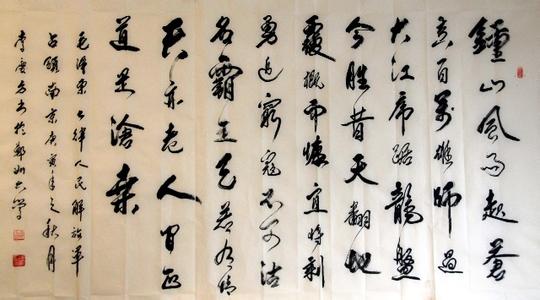 鍾山風雨起蒼
黄百萬雄師過
大江虎踞龍盤
今勝昔天翻地
覆慨而慷宜将剩
勇追窮寇不可沽
名霸王天若有情
天亦老人間正
道是滄桑
毛澤東七律人民解放軍
占領南京庚寅年之秋月
李書於鄭州大學